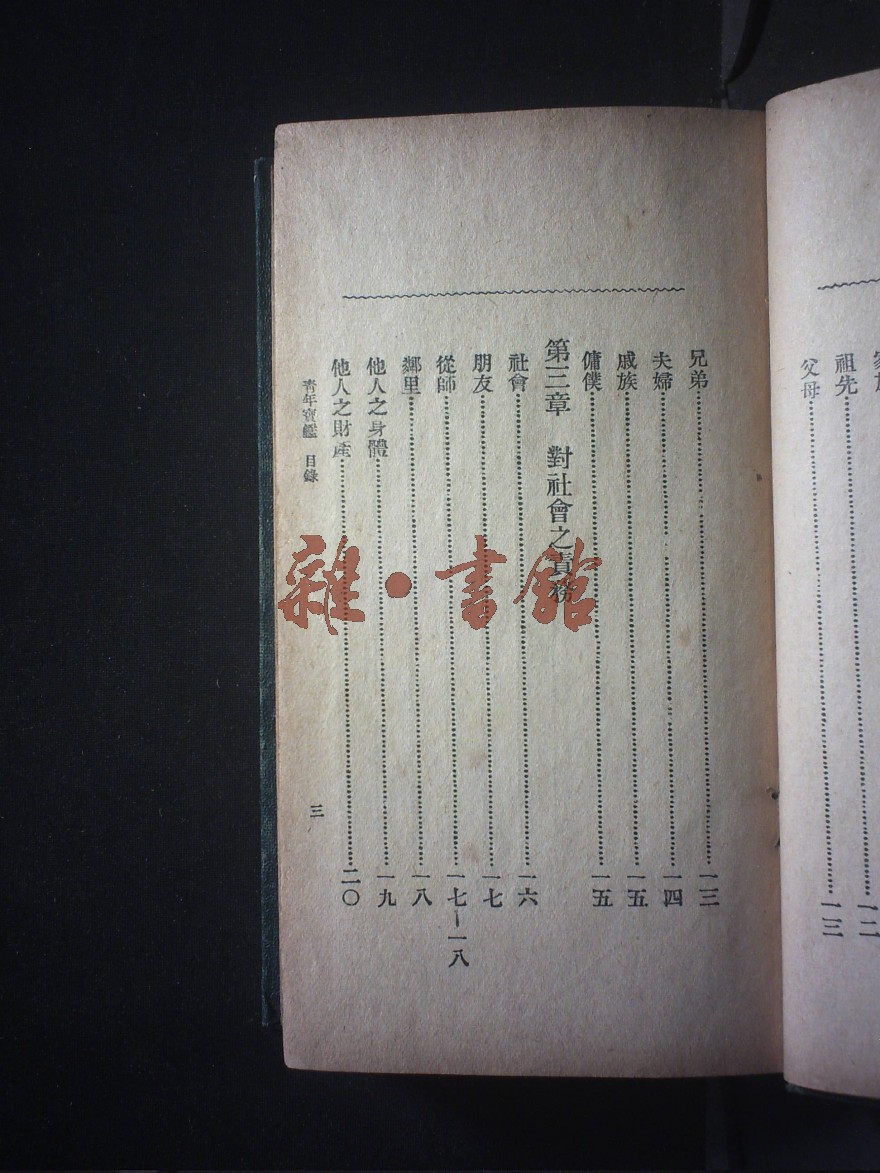 祖先……一二
父母……一三
兄弟……一三
夫婦……一四
戚族……一五
傭僕……一五
第三章　對社會之責務
社會……一六
朋友……一七
從師……一七－一八
鄰里……一八
他人之身體……一九
他人之財產……二〇
青年寶鑑　目錄
三
雜·書館